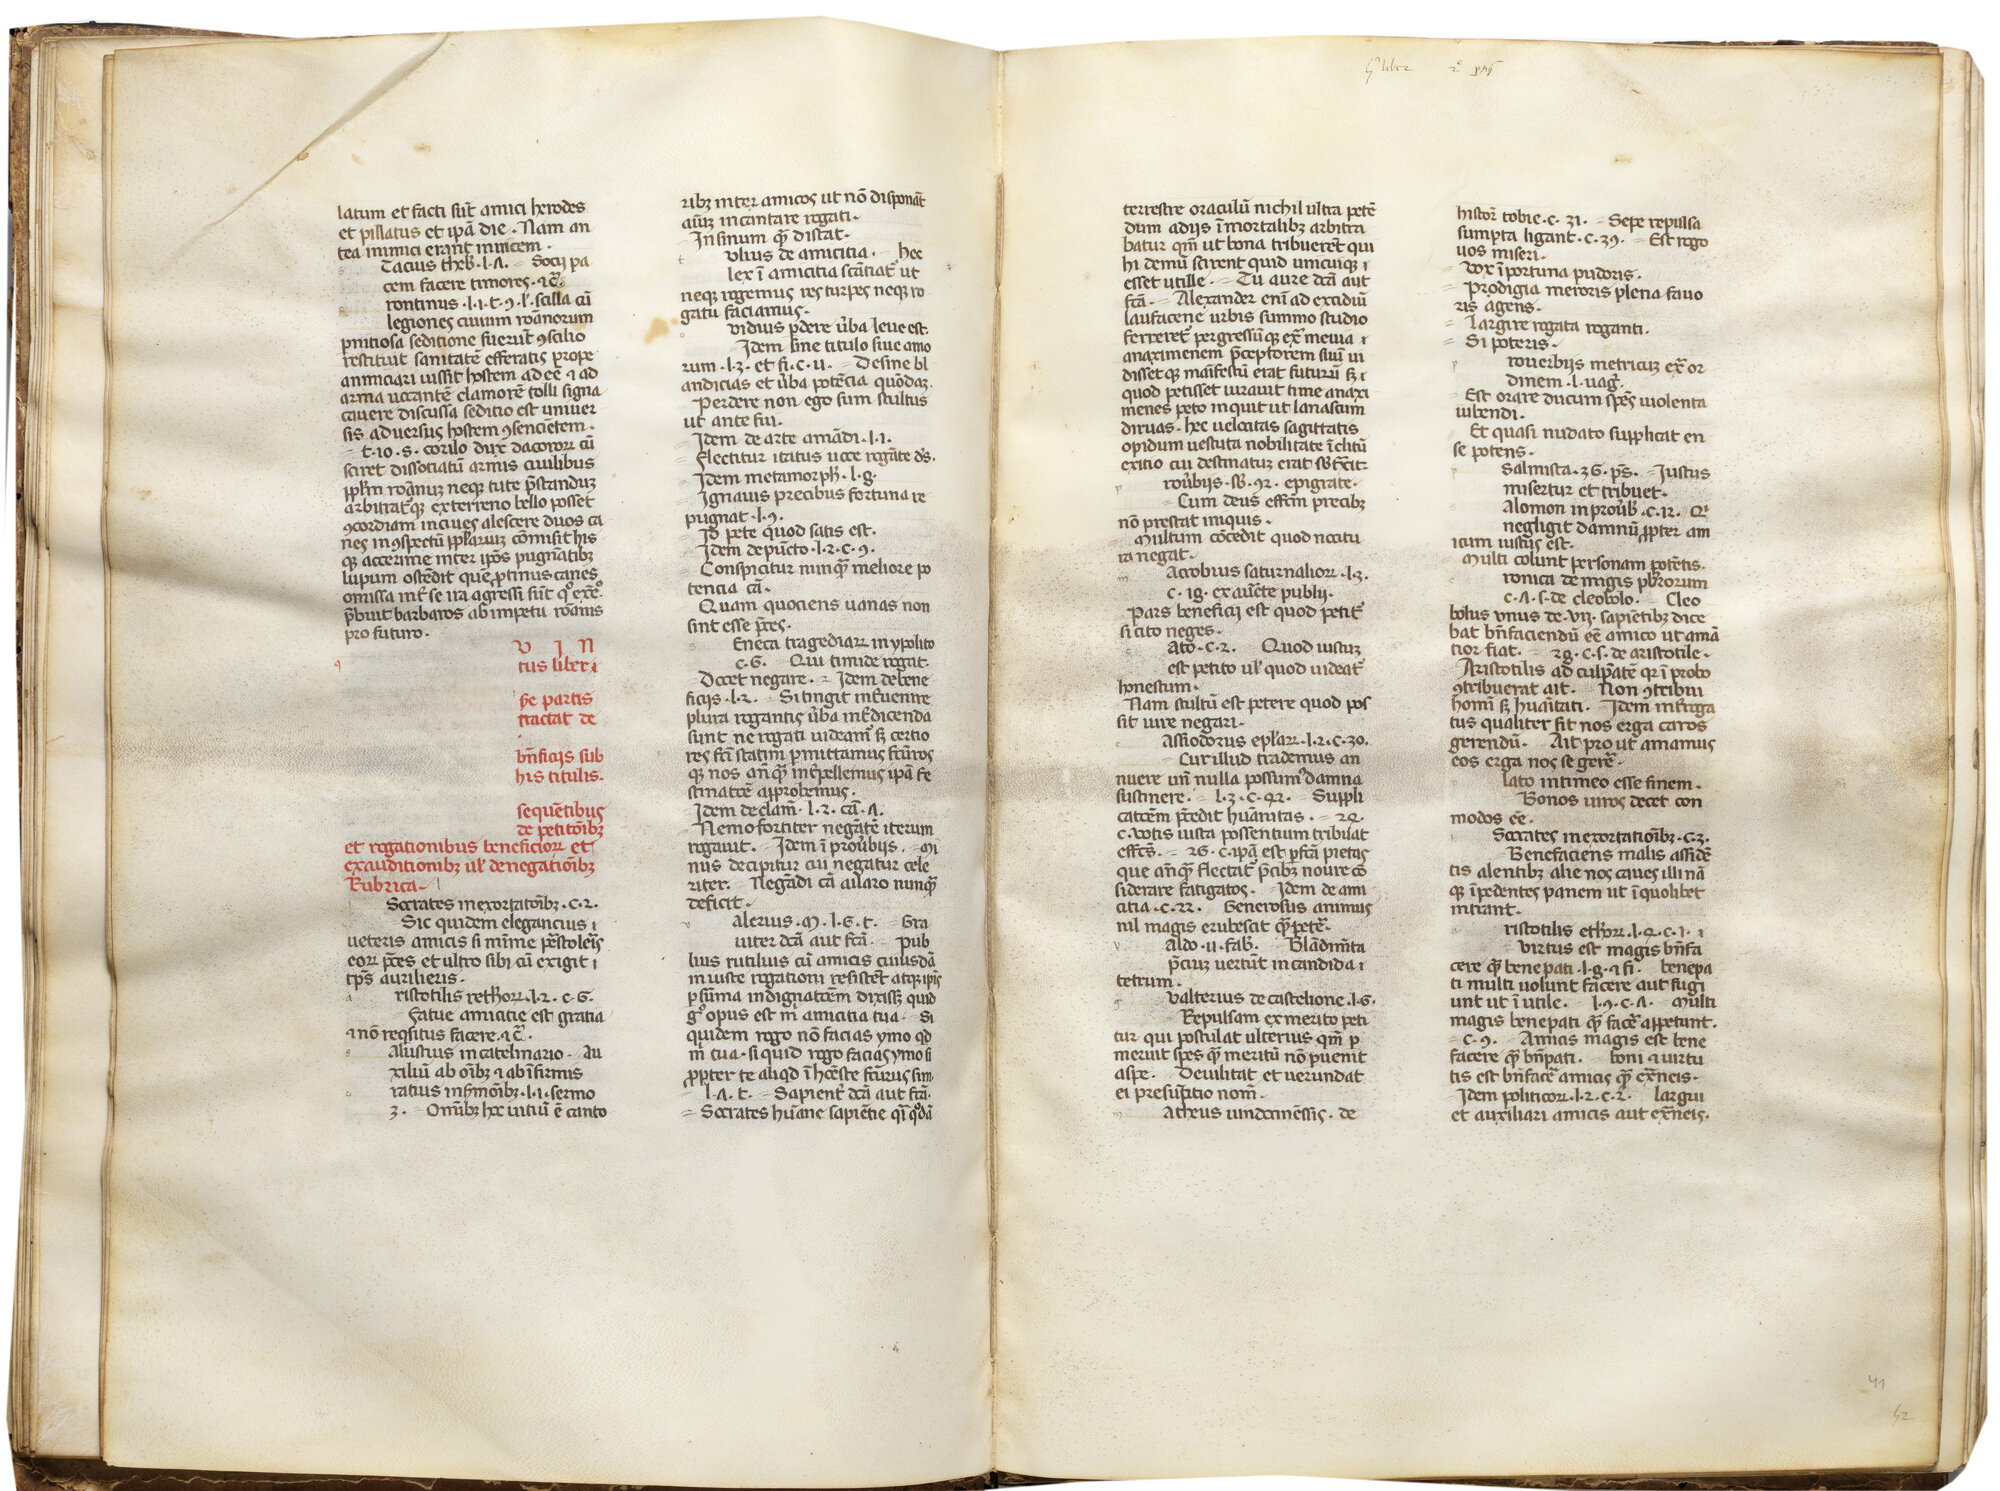 latum et facti sūt amici herodes
et pillatus et ipā die · Nam an
tea inimici erant inuicem ·
Tacius theb̄ · l · 1 · = Socij pa
cem facere timores · ⁊c̄ ·
rontinus · l · i · t · 9 · l̓ · scilla cū
legiones ciuium roānorum
pnitiosa seditione fuerūt ꝯscilio
restituit sanitatē efferatis prope
annūciari iussit hostem adeē ⁊ ad
arma uocantē clamorē tolli signa
cauere discussa seditio est uniuer
sis aduersus hostem ꝯsencietem ·
= t · 10 · s · corilo dux dacoroꝝ cū
sciret dissociatū armis ciuilibus
pplm roānuꝫ neqꝫ tute p̄standuꝫ
arbitrat̄qꝫ externo bello posset
ꝯcordiam in ciues alescere duos ca
nes in ꝯspectū pplariuꝫ cōmisit his
qꝫ acerrime inter ip̄os pugnātibꝫ
lupum ostēdit quē ꝓtinus canes
omissa int̄ se ira agressi sūt qͦ exēͦ
p̄buit barbaros ab impetu roānis
pro futuro ·
V I N
tus liber i
ꝰe partis
tractat de
bn̄ficijs sub
his titulis ·
sequētibus
de petitōibꝫ
et rogationibus beneficioꝝ et
exauditionibꝫ ul̓ denegatiōibꝫ
Rubrica ·
Socrates in exortatōibꝫ · c · 2 ·
Sic quidem elegancius i
ueteris amicis si mīme p̄stoleris
eoꝝ p̄ces et ultro sibi cū exigit i
tp̄s auxilieris ·
a ristotilis rethoꝝ · l · 2 · c · 6 ·
= fatue amicitie est gratia
⁊ nō reqͥsitus facere · ⁊c̄ ·
s alustius in catelinario · Au
xiliū ab oībꝫ ⁊ ab īfirmis
ratius in s̄mōibꝫ · l · i · sermo
3 · = Omībꝫ hoc uitiū ē canto
ribꝫ inter amicos ut nō disponāt
aīuꝫ incantare rogati ·
In sinum qꝫ distat ·
t ulius de amicitia · = hec
lex ī amicitia scāciat̄ ut
neqꝫ rogemus res turpes neqꝫ ro
gati faciamus ·
o vidius p̄dere ūba leue est ·
Idem sine titulo siue amo
rum · l · 3 · et fi · c · u · = Desine bl
andicias et ūba potēcia quōdaꝫ ·
= Perdere non ego sum stultus
ut ante fui ·
= Idem de arte amādi · l · i ·
= flectitur iratus uoce rogāte ds̄ ·
= Idem metamorph̄ · l · 9 ·
= Ignauis precibus fortuna re
pugnat · l · 9 ·
= Id pete quod satis est ·
= Idem de pūcto · l · 2 · c · 9 ·
= Conspicitur nunqꝫ meliore po
tencia cā ·
= Quam quociens uanas non
sint esse p̄ces ·
s Eneca tragediaꝝ in ypolito
c · 6 · = Qui timide rogat ·
= Docet negare · = Idem de bene
ficijs · l · 2 · = Si tingit int̄uenire
plura rogantis ūba int̄dicenda
sunt ne rogati uideam̄ sꝫ certio
res fcī statim pmittamus fcūros
qꝫ nos anqꝫ int̄pellemus ipā fe
stinatōē approbemus ·
= Idem declam̄ · l · 2 · cā · 1 ·
= Nemo fortiter negātē iterum
rogauit · = Idem ī proūbijs · = mi
nus decipitur cui negatur cele
riter · = Negādi cā auaro nunqꝫ
deficit ·
v alerius · m · l · 6 · t · = Gra
uiter dcā aut fcā · = Pub
lius rutilius cū amicis cuiusdā
iniuste rogationi resistēt atqꝫ ipis
p sūma indignatōem dixissꝫ quid
gͦ opus est m̄ amicitia tua · = Si
quidem rogo nō facias ymo qd
m̄ tua · si quid rogo facias ymo si
ꝓpter te aliqd ī hōeste fcūrus sim
= l · 1 · t · = Sapient̄ dcā aut fcā ·
= Socrates hūane sapiētie qͥ qͦdā
5ꝰ liber 2ͤ ptis
terrestre oraculū nichil ultra petē
dum adijs īmortalibꝫ arbitra
batur qm̄ ut bona tribuerēt qui
hi demū scirent quid unicuiqꝫ i
esset utille · = Tu aure dcā aut
fcā · = Alexander enī ad excidiū
laufacene urbis summo studio
ferreret̄ pergressūqꝫ ex̄ menia i
anaximenem p̄ceptorem suū ui
dissetqꝫ manifestū erat futurū sꝫ i
quod petisset iurauit time anaxi
menes peto inquit ut lanascum
diruas · hec uelocitas sagittatis
opidum uestuta nobilitate īclitū
exitio cui destinatuꝫ erat sb̄t̄xit ·
p roūbijs · sb̄ · 92 · epigrate ·
= Cum deus effcm̄ precibꝫ
nō prestat iniquis ·
= Multum cōcedit quod nō citu
ra negat ·
m Acrobius saturnalioꝝ · l · 3 ·
c · 19 · ex auc̄te publij ·
= Pars beneficij est quod petit̄
si cito neges ·
c ato · c · 2 · = Quod iustuꝫ
est petito ul̓ quod uideat̄
honestum ·
= Nam stultū est petere quod pos
sit iure negari ·
c Assiodorus ep̄laꝝ · l · 2 · c · 30 ·
= Cur illud tradimus an
nuere un̄ nulla possumꝰ damna
sustinere · = l · 3 · c · 42 · = Suppli
catōem p̄cedit hūanitas · = 24 ·
c · uotis iusta possentium tribuat
effcs̄ · = 26 · c · ipā est ꝑfcā pietas
que anqꝫ flectat̄ p̄cibꝫ nouit cō
siderare fatigatos · = Idem de ami
citia · c · 22 · = Generosus animus
nil magis erubescit qꝫ petē ·
v aldo · u · fab̄ · = Blādimēta
p̄ciuꝫ uertūt in candida i
tetrum ·
g valterius de castelione · l · 6 ·
= Repulsam ex merito peti
tur qui postulat ulterius qm̄ p
meruit spes qꝫ meritū nō puenit
aspe · = Deuilitat et uerundat
ei presūptio nom̄ ·
m atheus uindocinēssis · de
histor̄ tobie · c · 31 · = Sepe repulsa
sumpta ligant · c · 39 · = Est rogo
uos miseri ·
= Vox īportuna pudoris ·
= Prodigia meroris plena fauo
ris agens ·
= Largire rogata roganti ·
= Si poteris ·
p rouerbijs metricuꝫ ex̄ or
dinem · l · uag̓ ·
= Est orare ducum spēs uiolenta
iubendi ·
= Et quasi nudato supplicat en
se potens ·
p Salmista · 36 · ps̄ · = Iustus
misertur et tribuet ·
s alomon in proūb̄ · c · 12 · = Qͥ
negligit damnū ꝓpter am
icum iustus est ·
= Multi colunt personam potētis ·
c ronica de migis pħroꝝum
c · 1 · s · de cleobolo · = Cleo
bolus unus de · vij · sapiētibꝫ dice
bat bn̄faciendū eē amico ut amā
tior fiat · = 29 · c · s · de aristotile ·
= Aristotilis ad culpatē qꝛ ī probo
ꝯtribuerat ait · = Non ꝯtribui
homī sꝫ hūaītati · = Idem int̄roga
tus qualiter sit nos erga caros
gerendū · = Ait pro ut amamus
eos erga nos se gerē ·
p lato in timeo esse finem ·
= Bonos uiros decet con
modos eē ·
Socrates in exortatiōibꝫ · c · 3 ·
= Benefaciens malis assidē
tis alentibꝫ alienos canes illi nā
qꝫ īpedentes panem ut ī quolibet
intrant ·
a ristotilis ethoꝝ · l · 4 · c · i · i
= virtus est magis bn̄fa
cere qꝫ bene pati · l · 9 · ⁊ fi · = benepa
ti multi uolunt facere aut fugi
unt ut ī utile · = l · 9 · c · 1 · = Multi
magis bene pati qꝫ facē appetunt ·
= c · 9 · = Amicis magis est bene
facere qꝫ bn̄pati · = boni ⁊ uirtu
tis est bn̄facē amicis qꝫ ex̄neis ·
= Idem politicoꝝ · l · 2 · c · 2 · = largiri
et auxiliari amicis aut ex̄neis ·
41
42